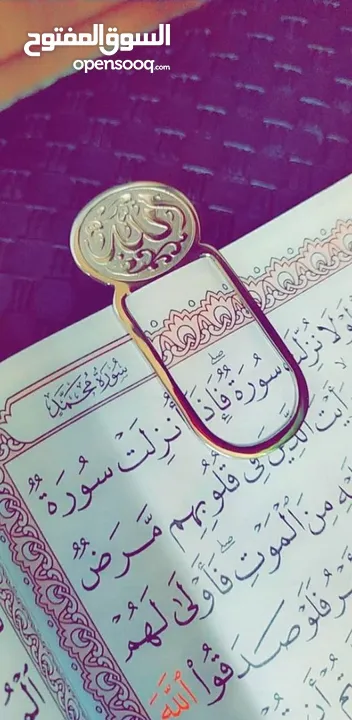 السوق المفتوح
opensooq.com
سُورَةُ مُحَمَّد
لَا نُزِّلَتْ سُورَةٌ ۖ فَإِذَآ أُنزِلَتْ سُورَةٌ
ٱلَّذِينَ فِى قُلُوبِهِم مَّرَضٌ
مِنَ ٱلْمَوْتِ ۖ فَأَوْلَىٰ لَهُمْ
فَلَوْ صَدَقُوا۟ ٱللَّهَ